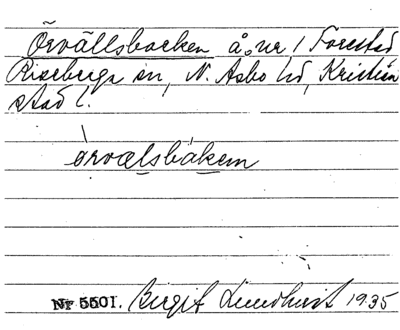 Örvällsbacken å nr 1 Forestad
Riseberga sn, N. Åsbo hd, Kristian
stad l.
örvælsbäkem
Nr 5501. Birgit Lundkvist 1935